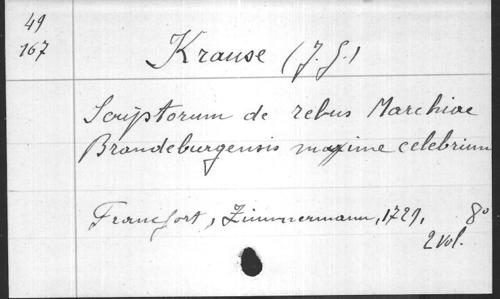 49
167
Krause (J. G.)
Scriptorum de rebus Marchiae
Brandeburgensis maxime celebrium
Francfort, Zimmermann, 1729, 8º
2 vol.